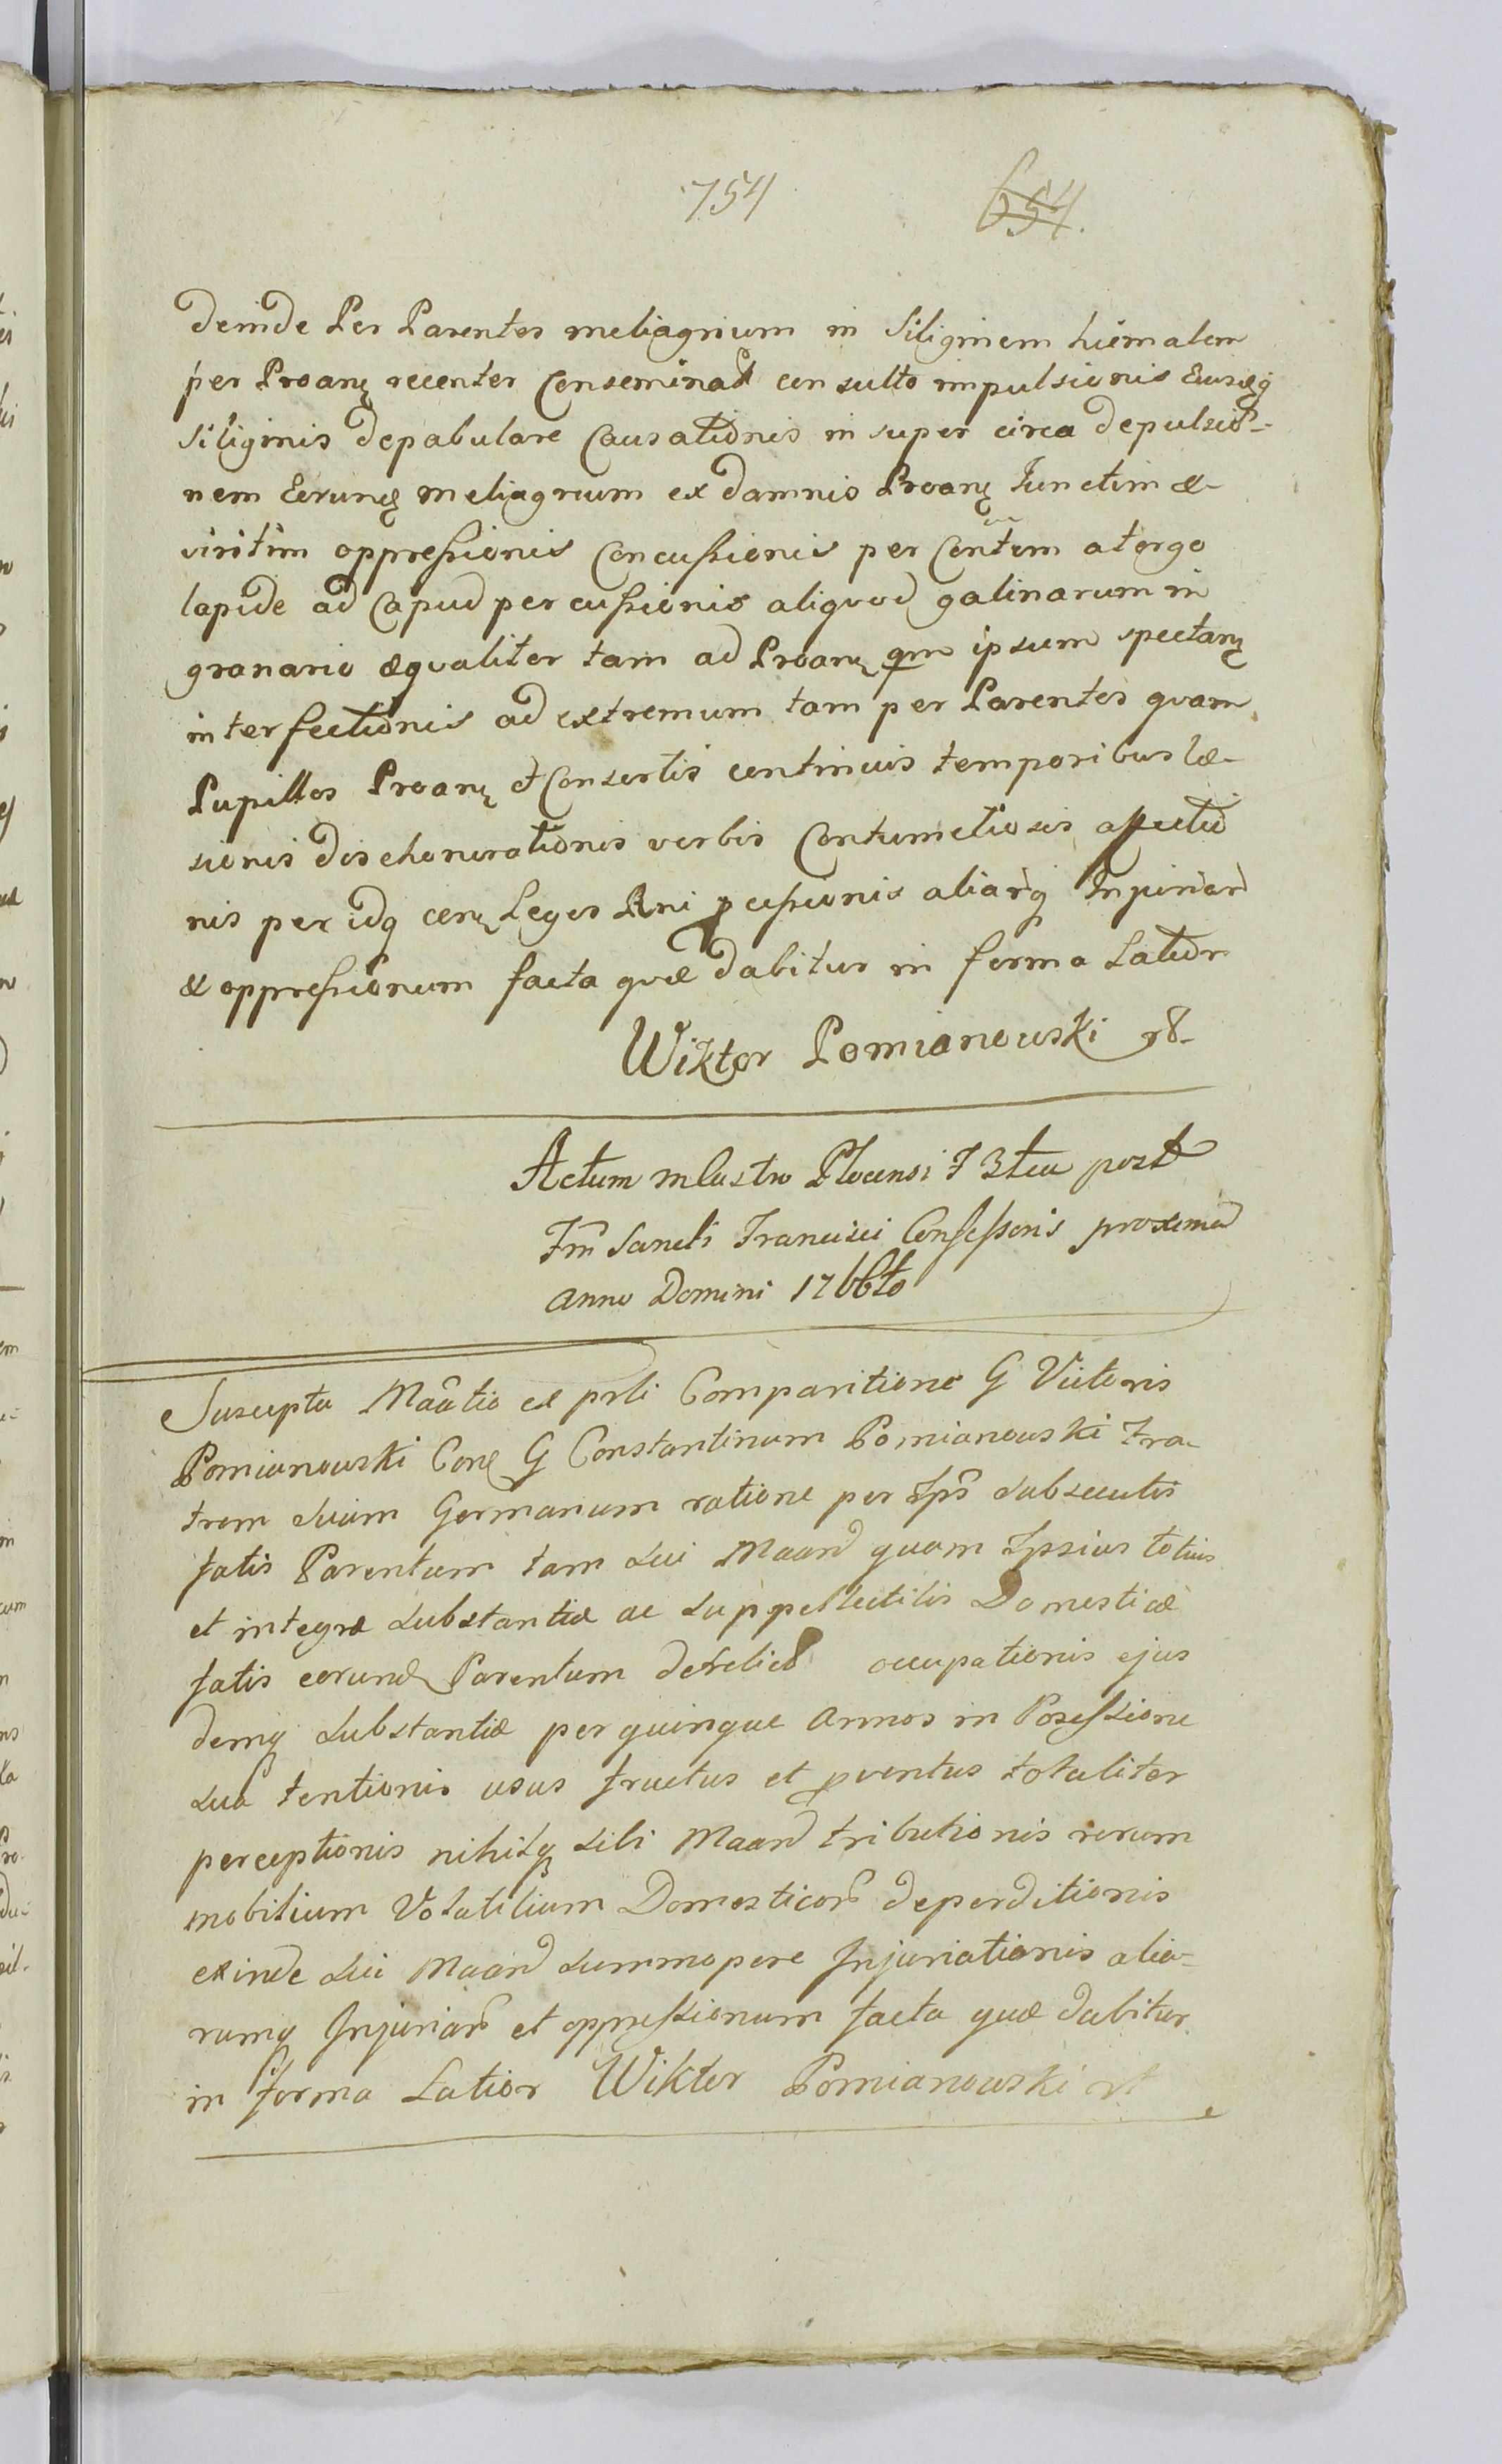 754 654.
deinde Per Parentes meliagrium in Siliginem hiemalem
per Proanꝫ recenter Conseminat consulto impulsionis Eiusdꝫq
Siliginis depabulare Causationis in super circa depulsio-
nem Eorundꝫ meliagrium ex damnis Proanꝫ Junctim &
viritim oppressionis Concussionis per Contem atergo
lapide ad Capud percussionis aliqvod galinarum in
granario æqvaliter tam ad Proanꝫ qm ipsum spectanꝫ
interfectionis ad extremum tam per Parentes qvam
Pupillos Proanꝫ et Consortis continuis temporibus læ-
sionis dischonorationis verbis Contumetiosis affectio
nis per idq cenꝫ Leges Rni pcussionis aliarq Injuriar
& oppressionum facta qvæ dabitur in forma Latior
Wiktor Pomianowski
Actum in Castro Plocensi F 3tia post
Fm Sancti Francisci Confessoris proxima
anno Domini 1766to
Suscepta Maatio ex prti Comparitione G Victoris
Pomianowski Con G Constantinum Pomianowski Fra-
trem Suum Germanum ratione per Ips subsecutis
fatis Parentum tam Sui Maan quam Ipsius totius
et integræ Substantiæ ac Suppellectilis Domesticæ
fatis eorund Parentum derelict occupationis ejus
demq Substantiæ per quinque Annos in Possessione
Sua tentionis usus fructus et pventus totaliter
perceptionis nihilq Sibi Maan tributionis rerum
mobilium Volatilium Domesticor deperditionis
exinde Sui Maan Summopere Injuriationis alia-
rumq Injuriar et oppressionum facta quæ dabitur
in forma Latior Wiktor Pomianowski